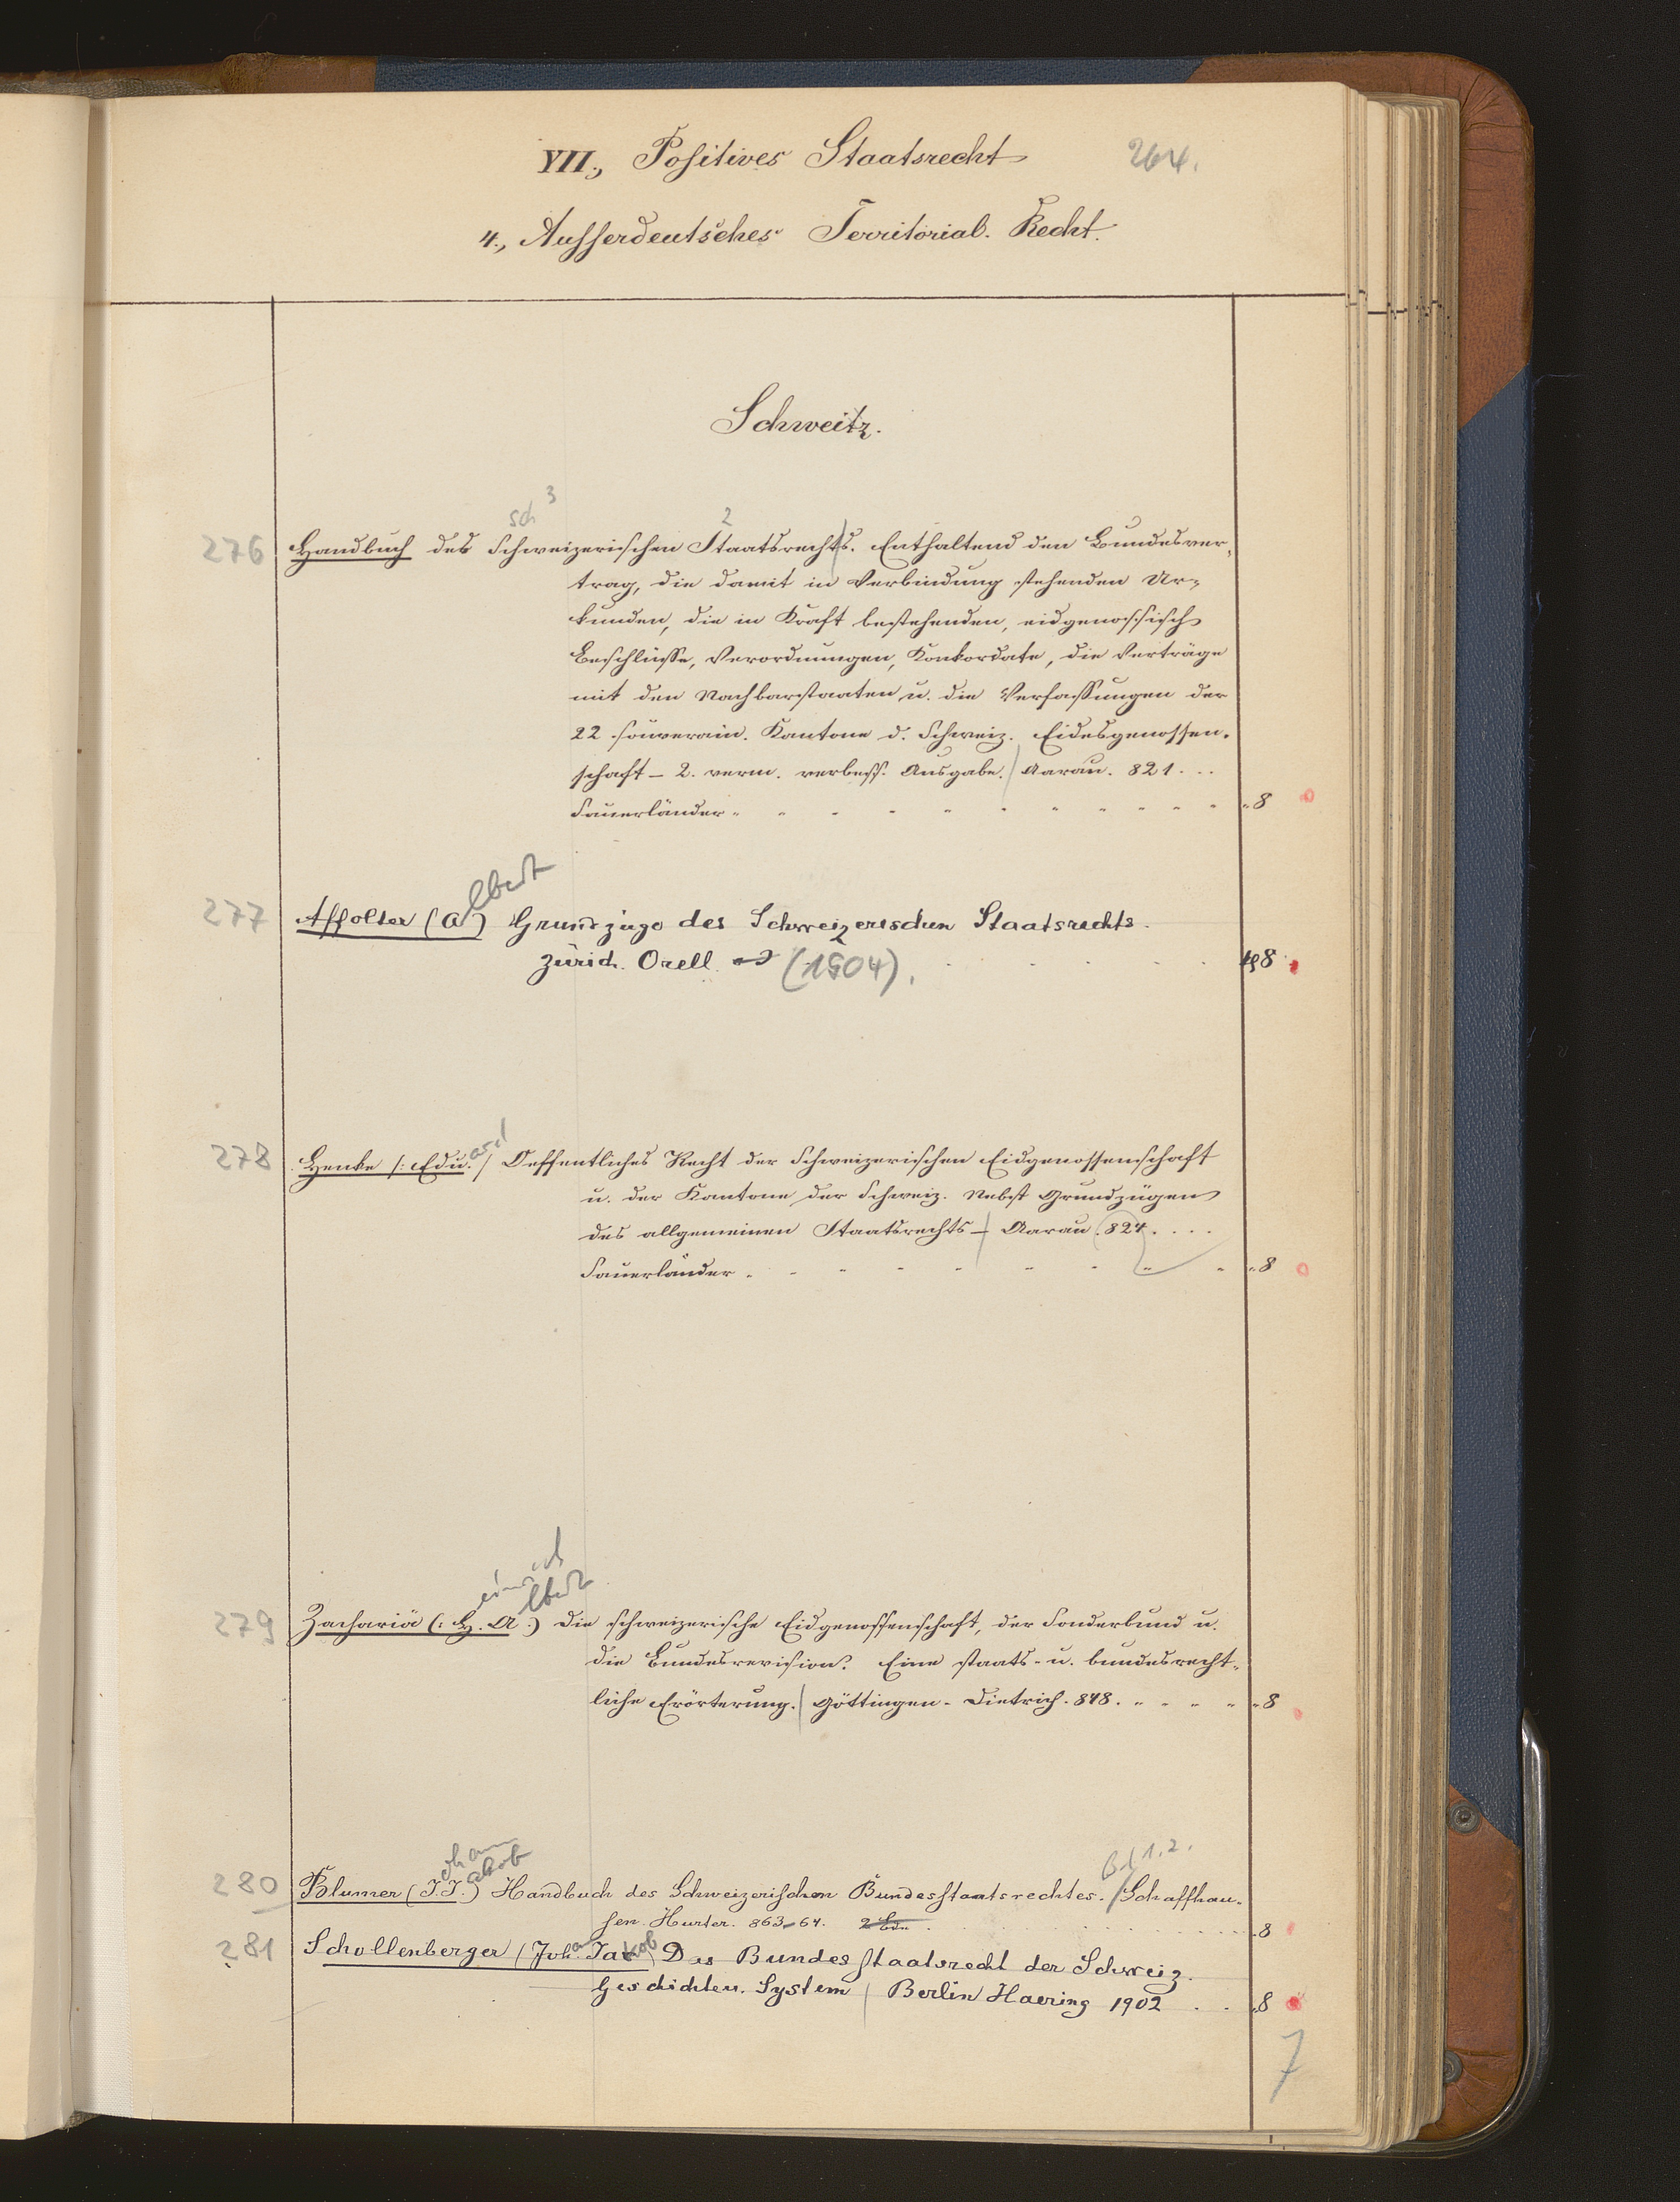 VII., Positives Staatsrecht 264.
4., Ausserdeutsches Territorial-Recht.
Schweitz.
sch 3 2
276 Handbuch des Schweizerischen Staatsrechts. Enthaltend den Bundesver-
trag, die damit in Verbindung stehenden Ur-
kunden, die in Kraft bestehenden, eidgenossisch
Beschlüsse, Verordnungen, Konkordate, die Verträge
mit den Nachbarstaaten u. die Verfassungen der
22 souverain. Kantone d. Schweiz. Eidesgenossen-
schaft - 2. verm. verbess. Ausgabe. Aarau. 821...
Sauerländer 8
lbert
277 Affolter (A) Grundzüge des Schweizerischen Staatsrechts.
Zürich. Orell (1904). 8
ard
278 Henke /: Edu. / Oeffentliches Recht der Schweizerischen Eidgenossenschaft
u. der Kantone der Schweiz. Nebst Grundzügen
des allgemeinen Staatsrechts - Aarau. 824....
Sauerländer. 8
einrich
lbert
279 Zachariä (: H. A :) Die schweizerische Eidgenossenschaft, der Sonderbund u.
die Bundesrevision. Eine staats- u. bundesrecht-
liche Erörterung. Göttingen - Dietrich. 848. 8
ohann
akob Bd 1. 2.
280 Blumer (J. J.) Handbuch des Schweizerischen Bundesstaatsrechtes. Schaffhau-
sen. Hurter. 863-64. 2 Bde. 8
281 Schollenberger (Johann Jakob) Das Bundesstaatsrecht der Schweiz.
Geschichte u. System Berlin Haering 1902 . . 8
7